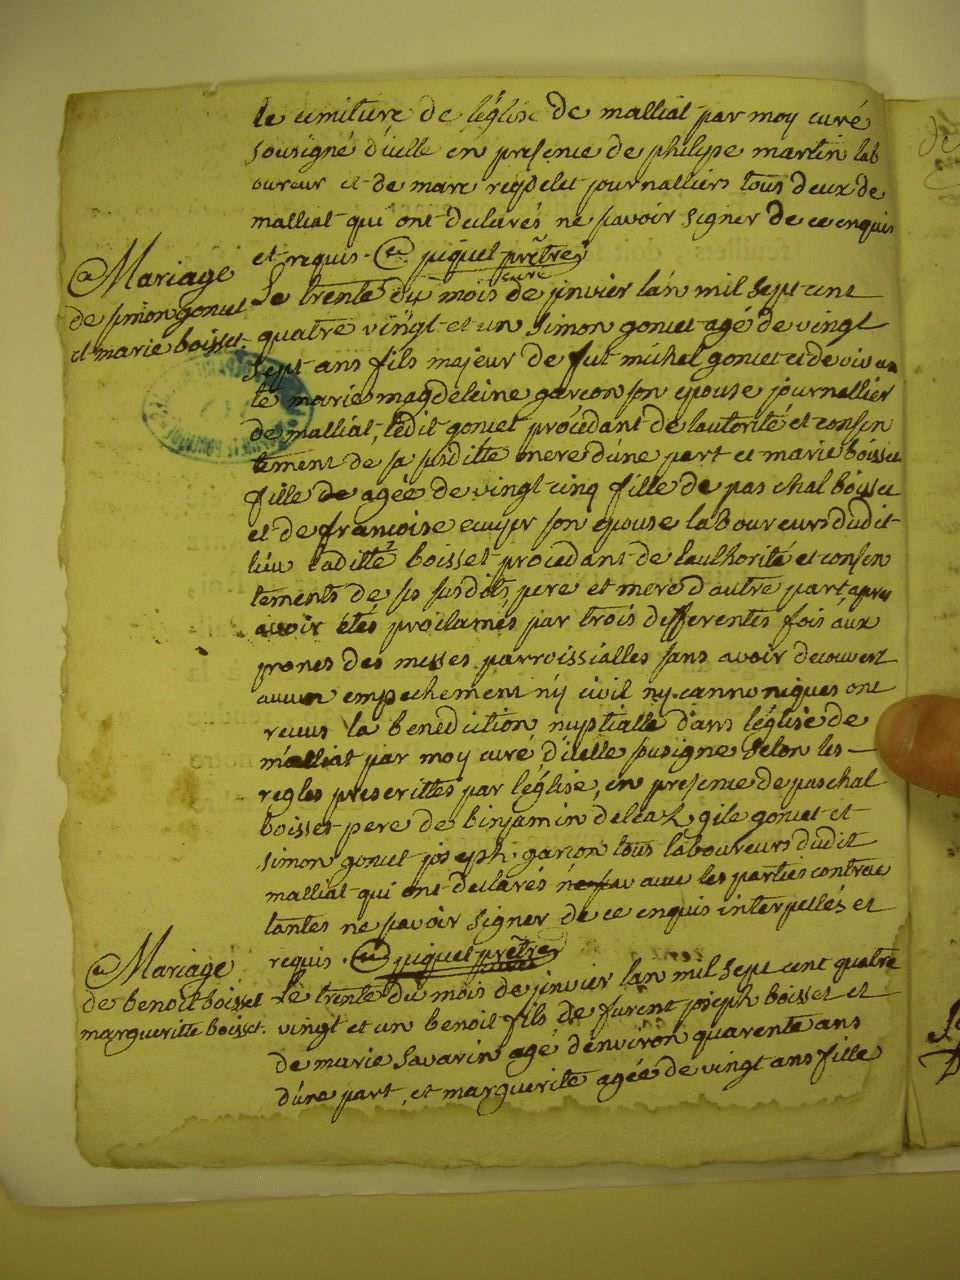 le cimitiere de léglise de malliat par moy curé
sousigné d'icelle en présence de philipe martin lab
oureur et de marc reydelet journalliers tous deux de
malliat qui ont déclarés ne scavoir signer de ce enquis
et requis. piquet prêtre
curé
Mariage
de simon goncet
et marie boisset.
Le trente du mois de janvier lan mil sept cent
quatre vingt et un simon goncet agé de vingt
sept ans fils majeur de feut michel goncet et de viv an
te marie magdeleine garcon son epouse journallier
de malliat, ledit goncet procédant de lautorité et consen
tement de sa susditte mere d'une part et marie boisset
fille de agée de vingt cinq fille de paschal boisset
et de francoise son epouse laboureurs dudit
lieu laditte boisset procedant de lauthorité et consen
tements de ses susdits pere et mere d'autre part apres
avoir étés proclamés par trois differentes fois aux
prones des messes parroissialles sans avoir decouvert
aucun empechement ny civil ny cannoniques ont
recus la benediction nuptialle dans léglise de
malliat par moy curé d'icelle susigne selon les
regles prescrittes par léglise, en présence de paschal
boisset pere de binjamin gile goncet et
simon goncet joseph garcon tous laboureurs dudit
malliat qui ont déclarés avec les parties contrac
tantes ne scavoir signer de ce enquis interpellés et
requis. piquet prêtre
curé
Mariage
de benoit boisset
margueritte boisset.
Le trente du mois de janvier lan mil sept cent quatre
vingt et un benoit fils de furent joseph boisset et
de marie savarin agé denviron quarente ans
d'une part, et marguerite agée de vingt ans fille